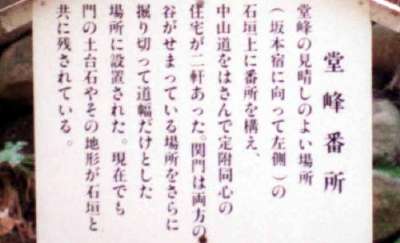 堂峰番所
堂峰の見晴しのよい場所
（坂本宿に向って左側）の
石垣上に番所を構え、
中山道をはさんで定附同心の
住宅が二軒あった。関門は両方の
谷がせまっている場所をさらに
掘り切って道幅だけとした
場所に設置された。現在でも
門の土台石やその地形が石垣と
共に残されている。